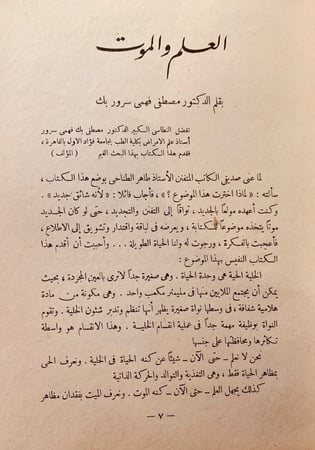 العلم والموت
بقلم الدكتور مصطفى فهمى سرور بك
تفضل النطاسى الكبير الدكتور مصطفى بك فهمى سرور
أستاذ علم الأمراض بكلية الطب بجامعة فؤاد الأول بالقاهرة ،
فقدم هذا الكتاب بهذا البحث القيم ( المؤلف )
لما عنى صديقى الكاتب المتفنن الأستاذ طاهر الطناحى بوضع هذا الكتاب ،
سألته : « لماذا اخترت هذا الموضوع ؟ » ، فأجاب قائلا : « لأنه شائق جديد » .
وكنت أعهده مولعاً بالجديد ، تواقاً إلى التفنن والتجديد ، حتى لو كان الجديد
موتاً يتخذه موضوعاً لكتابة ، ويعرضه فى لباقة واقتدار وتشويق إلى الاطلاع ،
فأعجبت بالفكرة ، ورجوت له ولنا الحياة الطويلة ... وأحببت أن أقدم هذا
الكتاب النفيس بهذا الموضوع :
الخلية الحية هى وحدة الحياة . وهى صغيرة جداً لا ترى بالعين المجردة ، بحيث
يمكن أن يجتمع الملايين منها فى مليمتر مكعب واحد . وهى مكونة من مادة
هلامية شفافة ، فى وسطها نواة صغيرة يظهر أنها تنظم وتدبر شئون الخلية . وتقوم
النواة بوظيفة مهمة جداً فى عملية انقسام الخلية . وهذا الانقسام هو واسطة
تكاثرها ومحافظتها على جنسها
نحن لا نعلم — حتى الآن — شيئاً عن كنه الحياة فى الخلية . ونعرف الحى
بمظاهر الحياة فقط ، وهى التغذية والتوالد والحركة الذاتية
كذلك يجهل العلم — حتى الآن — كنه الموت . ونعرف الميت بفقدان مظاهر
— ٧ —